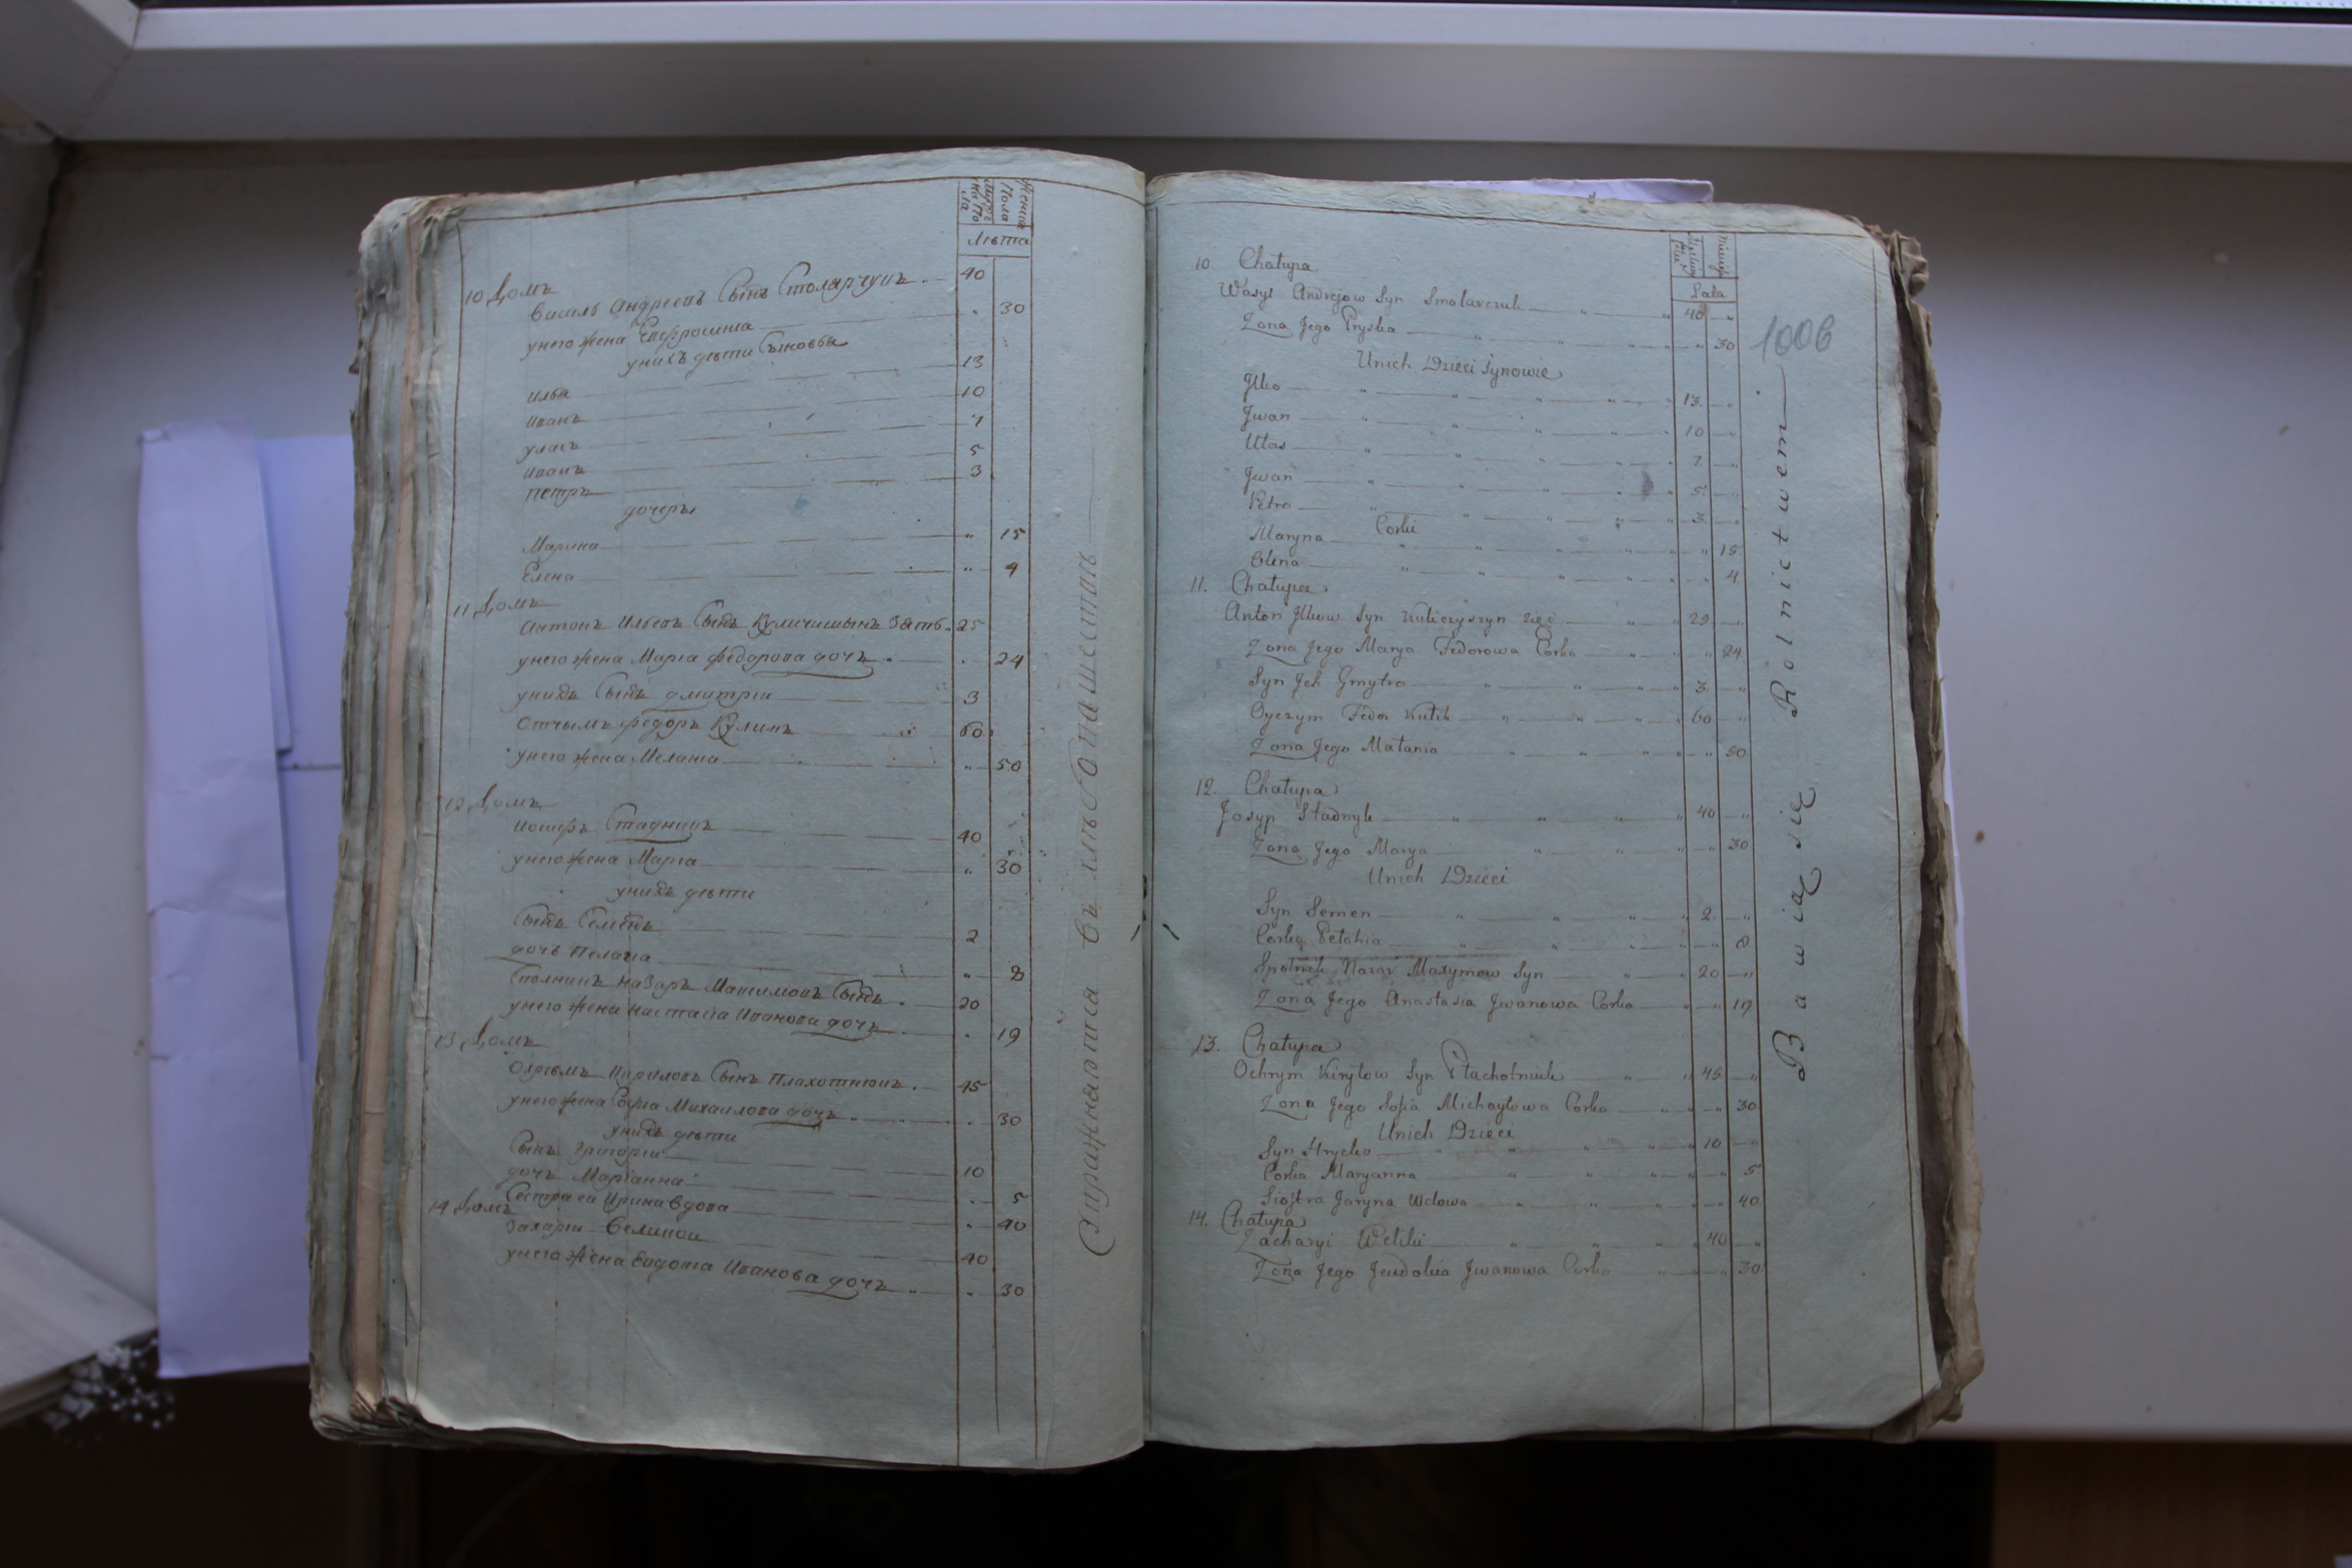 мужеска пола
женска Пола
Лѣта
10 Домъ
Василь Андреевъ Сынъ Столярчукъ 40
унего жена Евфросинia „ 30
унихъ дѣти Сыновья
Илья 13
Иванъ 10
уласъ 7
Иванъ 5
петръ 3
дочеры
Марина „ 15
Елена „ 4
11 Домъ
Антонъ Ильевъ Сынъ Куличишынъ Зять 25
унего жена Марiа федорова дочъ „ 24
унихъ Сынъ дмитрiи 3
Отчымъ федоръ Куликъ 60
унего жена Меланiа „ 50
12 Домъ
Иосифъ Стадникъ 40
унего жена Марiа „ 30
унихъ дѣти
Сынъ Семенъ 2
дочъ Пелагiа „ 8
Сполникъ назаръ Максимовъ Сынъ 20
унего жена настасiа Иванова дочъ „ 19
13 Домъ
Охрѣмъ Кириловъ Сынъ плахотнюкъ 45
унего жена Софiа Михаилова дочъ „ 30
унихъ дѣти
Сынъ Григорiи 10
дочъ Марiанна „ 5
Сестра ей Ирина вдова „ 40
14 Домъ
Захарiи Великои 40
унего жена Евдокiа Иванова дочъ „ 30
Упражняютса въ хлѣбопашествѣ
Lata
10 Chałupa
Wasyl Andrejow Syn Smolarczuk 40 „
Zona Jego Pryska „ 30
Unich Dzieci Synowie
Jlko 13 „
Jwan 10 „
Ułas 7 „
Jwan 5 „
Petro 3 „
Corki
Maryna „ 15
Olena „ 4
11. Chałupa
Anton Jlkow Syn Kuliczyszyn Zięć 25 „
Zona Jego Marya Fedorowa Corka „ 24
Syn Jch Dmytro 3 „
Oyczym Fedor Kulik 60 „
Zona Jego Małania „ 50
12. Chałupa
Josyp Stadnyk 40 „
Zona Jego Marya „ 30
Unich Dzieci
Syn Semen 2 „
Corka Pełahia „ 8
Społnik Nazar Maxymow Syn 20 „
Zona Jego Anastasia Jwanowa Corka „ 19
13. Chałupa
Ochrym Kiryłow Syn Płachotniuk 45 „
Zona Jego Sofia Michayłowa Corka „ 30
Unich Dzieci
Syn Hryćko 10 „
Corka Maryanna „ 5
Siostra Jaryna Wdowa „ 40
14. Chałupa
Zacharyi Weliki 40 „
Zona Jego Jewdokia Jwanowa Corka „ 30
Bawią się Rolnictwem
1006